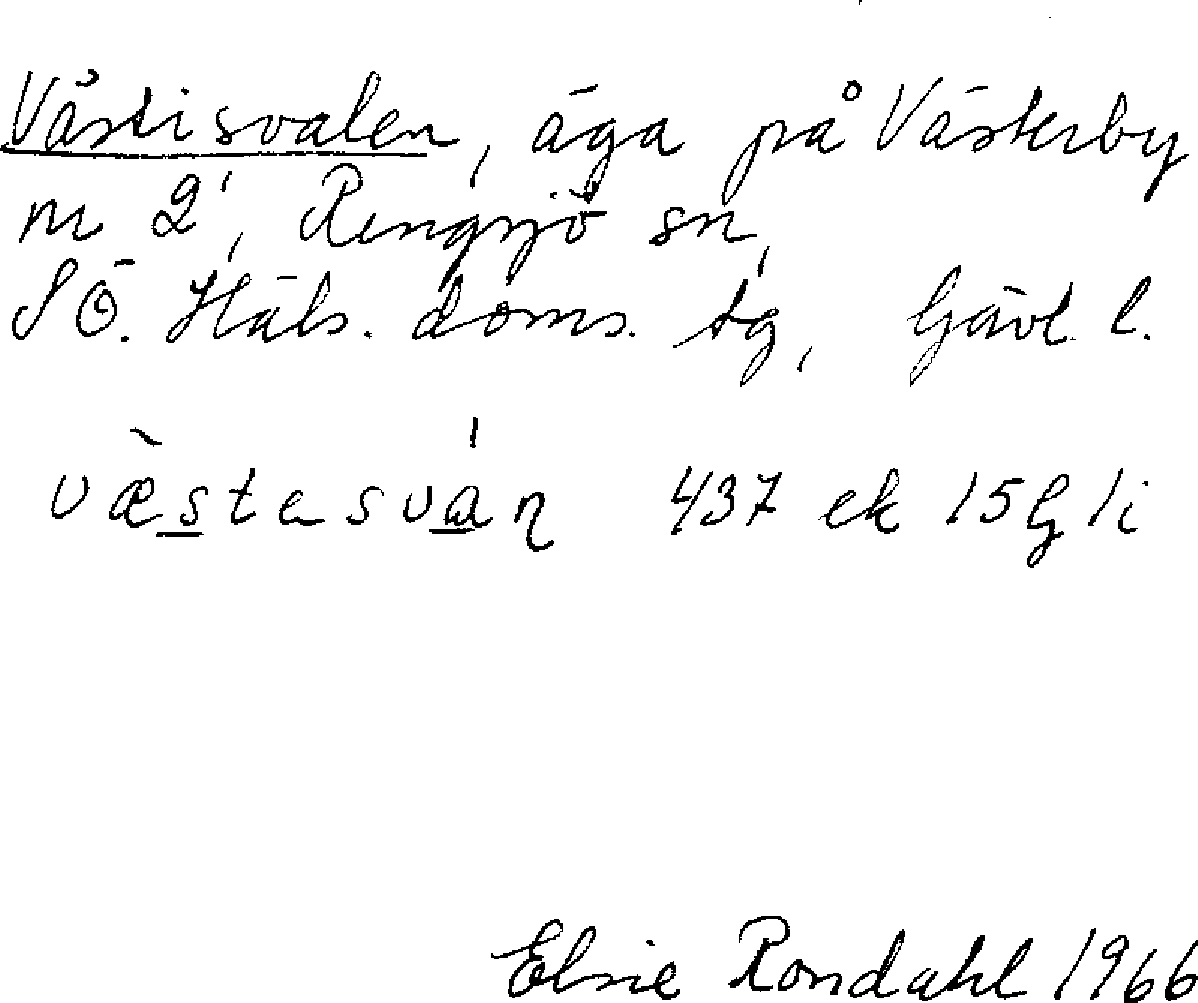 Västisvalen, äga på Västerby
nr 2', Rengsjö sn,
SÖ. Häls. doms. tg, Gävl. l.
væstesvaɳ 437 ek 15G 1i
Elsie Rondahl 1966